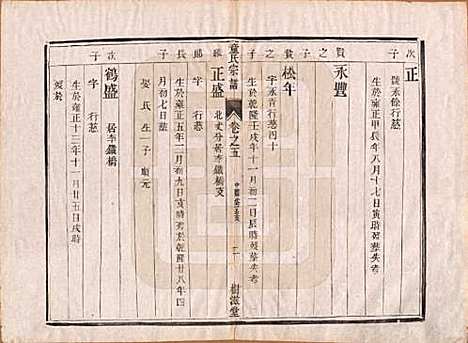 次子
正
諱永餘行慈
生於雍正甲辰年八月十七日寅時歿葬失考
贊之子
永豐
贊之子
松年
字永青行慈四十
生於乾隆壬戌年十一月初二日辰時歿葬失考
童氏宗譜
卷之五
樹滋堂
北大分居李鐵橋支
長子
正盛
字 行慈
生於雍正五年二月初九日亥時歿於乾隆廿八年四
月初七日時葬
娶氏生子順元
次子
鶴盛
居李鐵橋
字 行慈
生於雍正十三年十一月廿五日戌時
歿葬